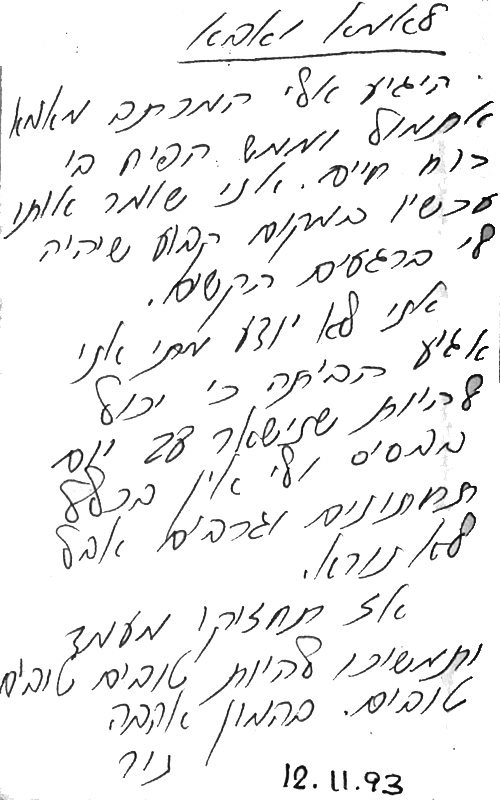 לאמא ואבא
היגיע אלי המכתב מאמא
אתמול וממש הפיח בי
רוח חיים. אני שומר אותו
עכשיו במקום קבוע שיהיה
לי ברגעים הקשים.
אני לא יודע מתי אני
אגיע הביתה כי יכול
להיות שנישאר עד יום
בבסיס ולי אין בכלל
תחתונים וגרביים אבל
לא נורא.
אז תחזיקו מעמד
ותמשיכו להיות טובים טובים
טובים. בהמון אהבה
ניר
12.11.93